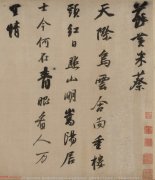 蘇黃米蔡
天際烏雲含雨重樓
頭紅日照山明嵩陽居
士今何在青眼看人萬
里情